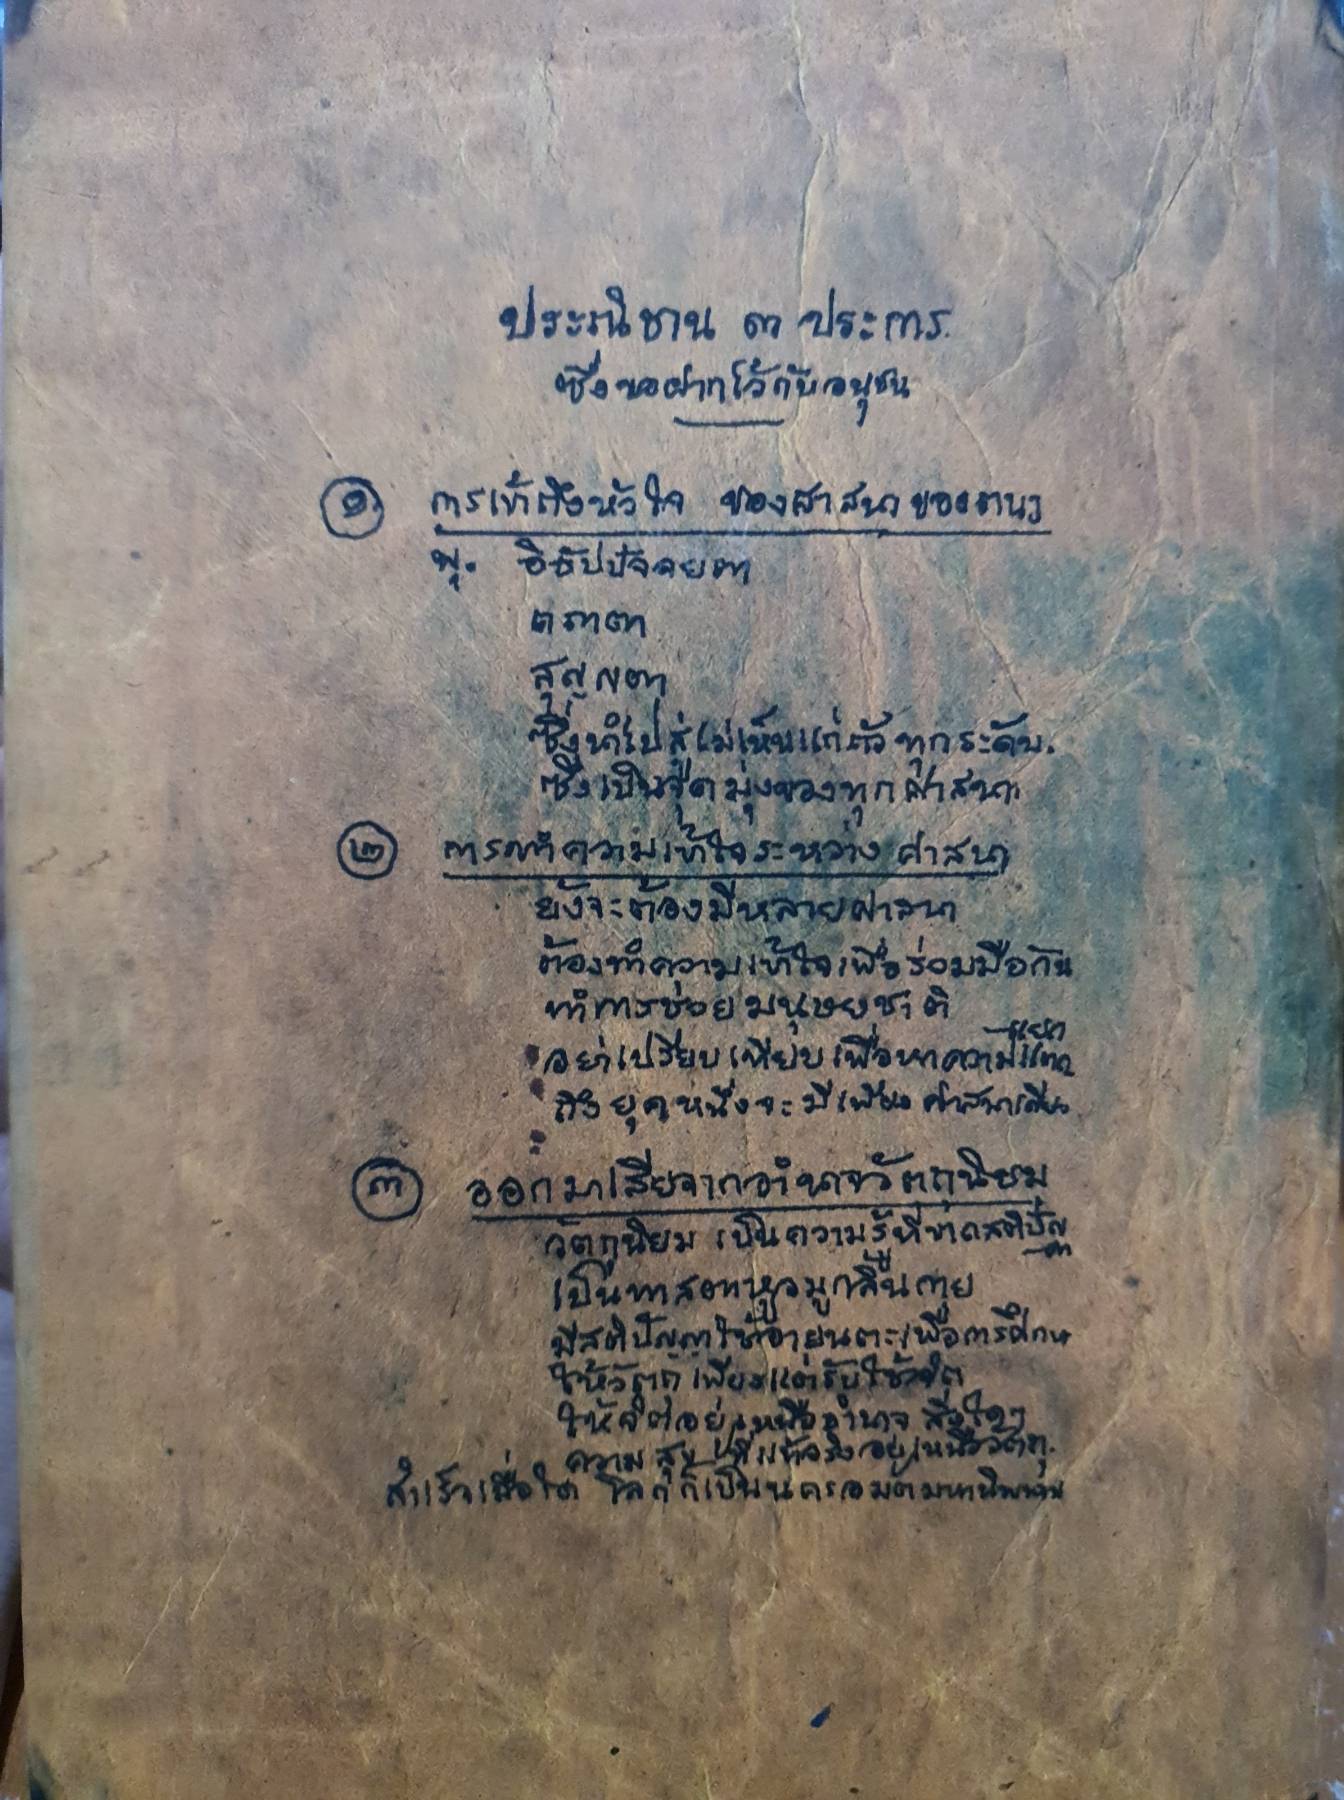 ประณิธาน ๓ ประการ.
ซึ่งขอฝากไว้กับอนุชน
๑ การเข้าถึงหัวใจ ของศาสนาของตนๆ
พุ. อิธัปปัจจยตา
ตถาตา
สุญญตา
ซึ่งนำไปสู่ไม่เห็นแก่ตัวทุกระดับ.
ซึ่งเป็นจุดมุ่งของทุกศาสนา
๒ การทำความเข้าใจระหว่าง ศาสนา
ยังจะต้องมีหลายศาสนา
ต้องทำความเข้าใจเพื่อร่วมมือกัน
ทำการช่วยมนุษยชาติ
อย่าเปรียบเทียบเพื่อหาความแตกแยก
ถึงยุคหนึ่งจะมีเพียงศาสนาเดียว
๓ ออกมาเสียจากอำนาจวัตถุนิยม
วัตถุนิยม เป็นความรู้ที่ขาดสติปัญญา
เป็นทาสตาหูจมูกลิ้นกาย
มีสติปัญญาใช้อายตนะเพื่อการศึกษา
ให้วัตถุเพียงแต่รับใช้จิต
ให้จิตอยู่เหนืออำนาจ สิ่งใดๆ
ความสุขที่แท้จริงอยู่เหนือวัตถุ.
สำเร็จเมื่อใด โลกก็เป็นนครอมตมหานิพพาน